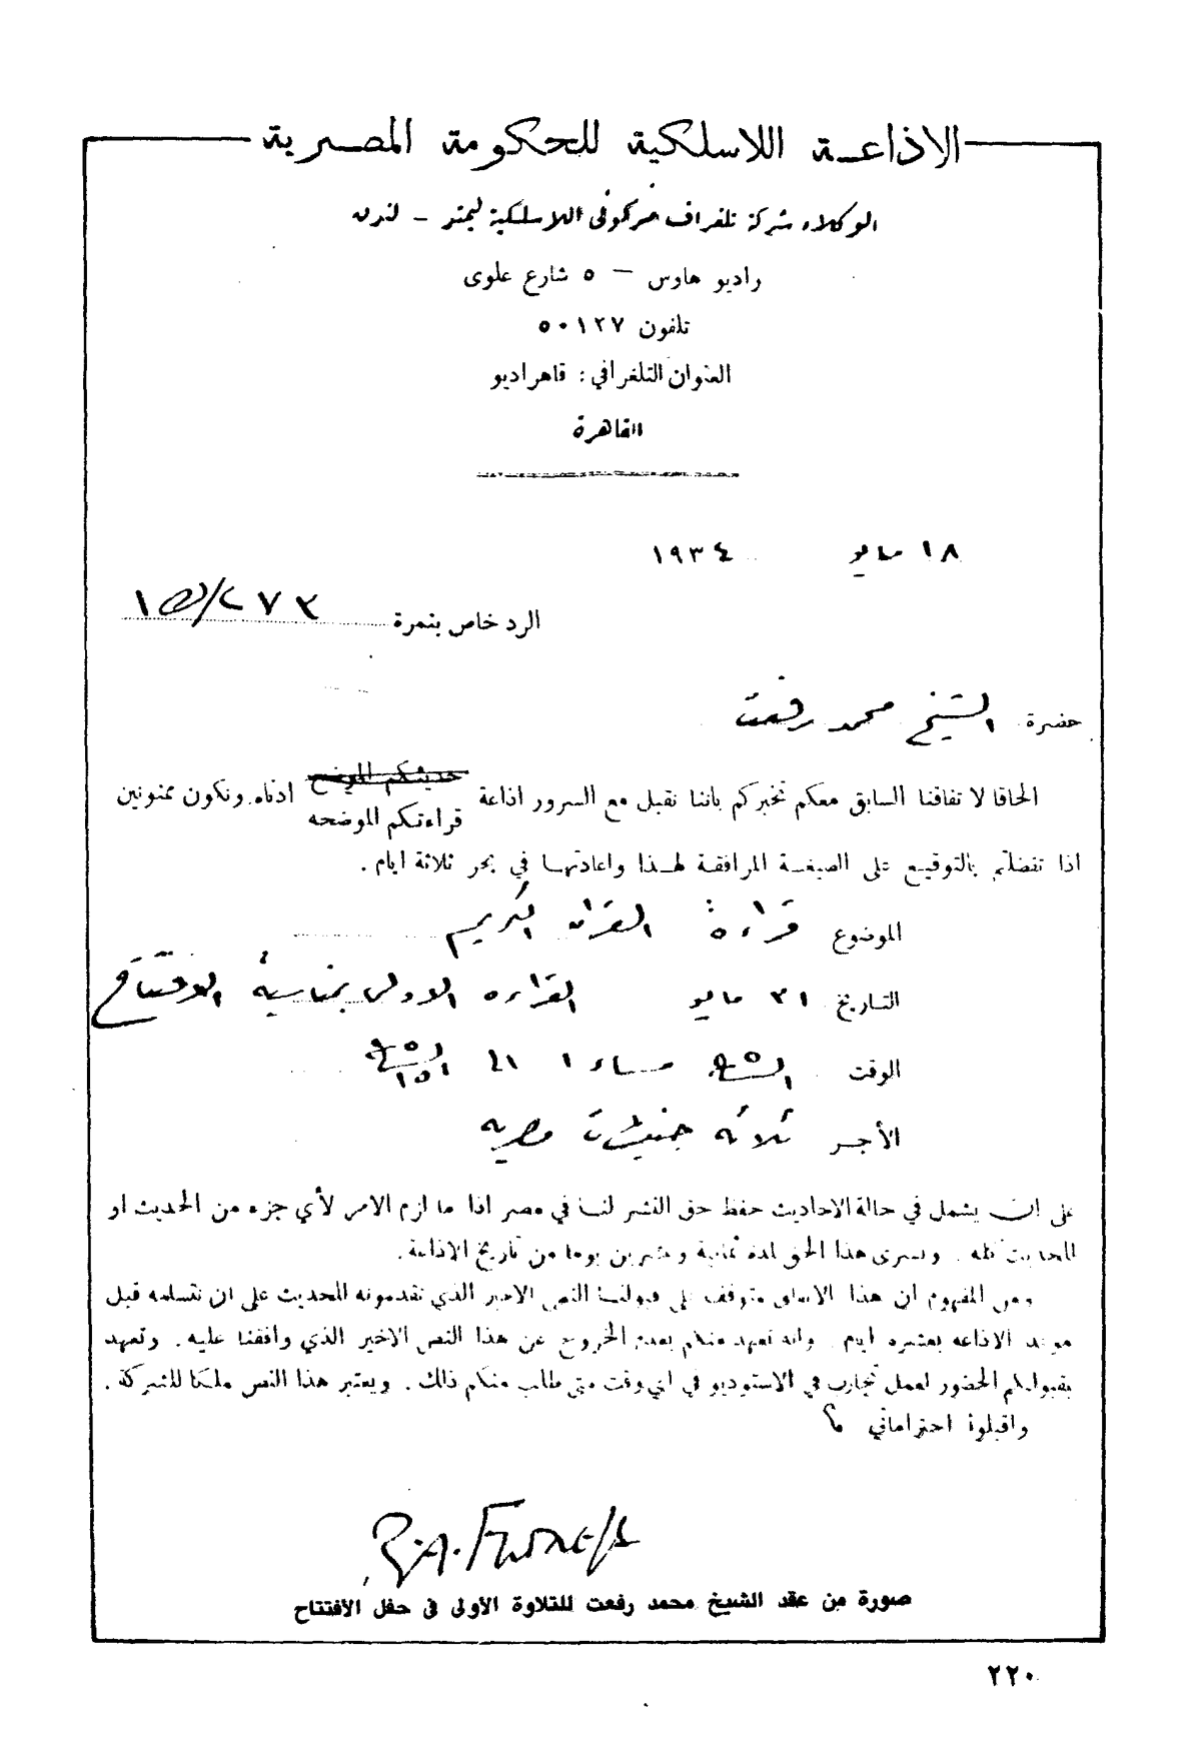 الاذاعة اللاسلكية للحكومة المصرية
الوكلاء شركة تلغراف مركوني اللاسلكية ليمتد - لندن
راديو هاوس — ٥ شارع علوى
تلفون ٥٠١٢٧
العنوان التلغرافي : قاهراديو
القاهرة
١٨ مايو ١٩٣٤
الرد خاص بنمرة
حضرة الشيخ محمد رفعت
الحاقا لاتفاقنا السابق معكم نخبركم باننا نقبل مع السرور اذاعة حديثكم الموضح ادناه. ونكون ممنونين
قراءتكم الموضحه
اذا تفضلتم بالتوقيع على الصيغة المرافقة لهذا واعادتها في بحر ثلاثة ايام .
الموضوع قراءة القران الكريم
التاريخ ٣١ مايو القراءه الاولى بمناسبة الافتتاح
الوقت مساء
الأجر ثلاثه جنيهات مصريه
على ان يشمل في حالة الاحاديث حفظ حق النشر لنا في مصر اذا ما لزم الامر لأي جزء من الحديث او
للحديث كله . ويسرى هذا الحق لمدة ثمانية وعشرين يوما من تاريخ الاذاعة .
ومن المفهوم ان هذا الاتفاق متوقف على قبولنا النص الاخير الذي تقدمونه للحديث على ان نتسلمه قبل
موعد الاذاعه بعشره ايام . وانه تعهد منكم بعدم الخروج عن هذا النص الاخير الذي وافقنا عليه . وتعهد
بقبولكم الحضور لعمل تجارب في الاستوديو في اي وقت متى طلب منكم ذلك . ويعتبر هذا النص ملكا للشركة .
واقبلوا احتراماتي
صورة من عقد الشيخ محمد رفعت للتلاوة الأولى فى حفل الأفتتاح
٢٢٠